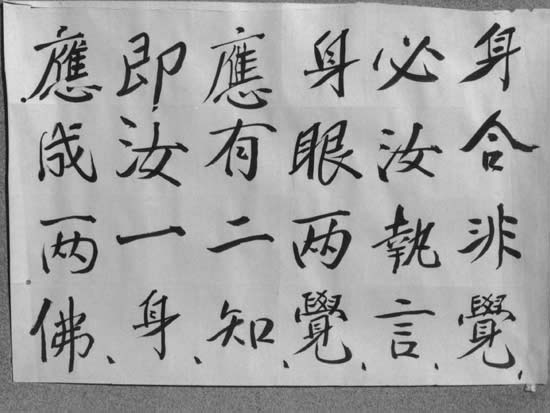 身合非覺、
必汝執言、
身眼两覺、
應有二知、
即汝一身、
應成两佛、